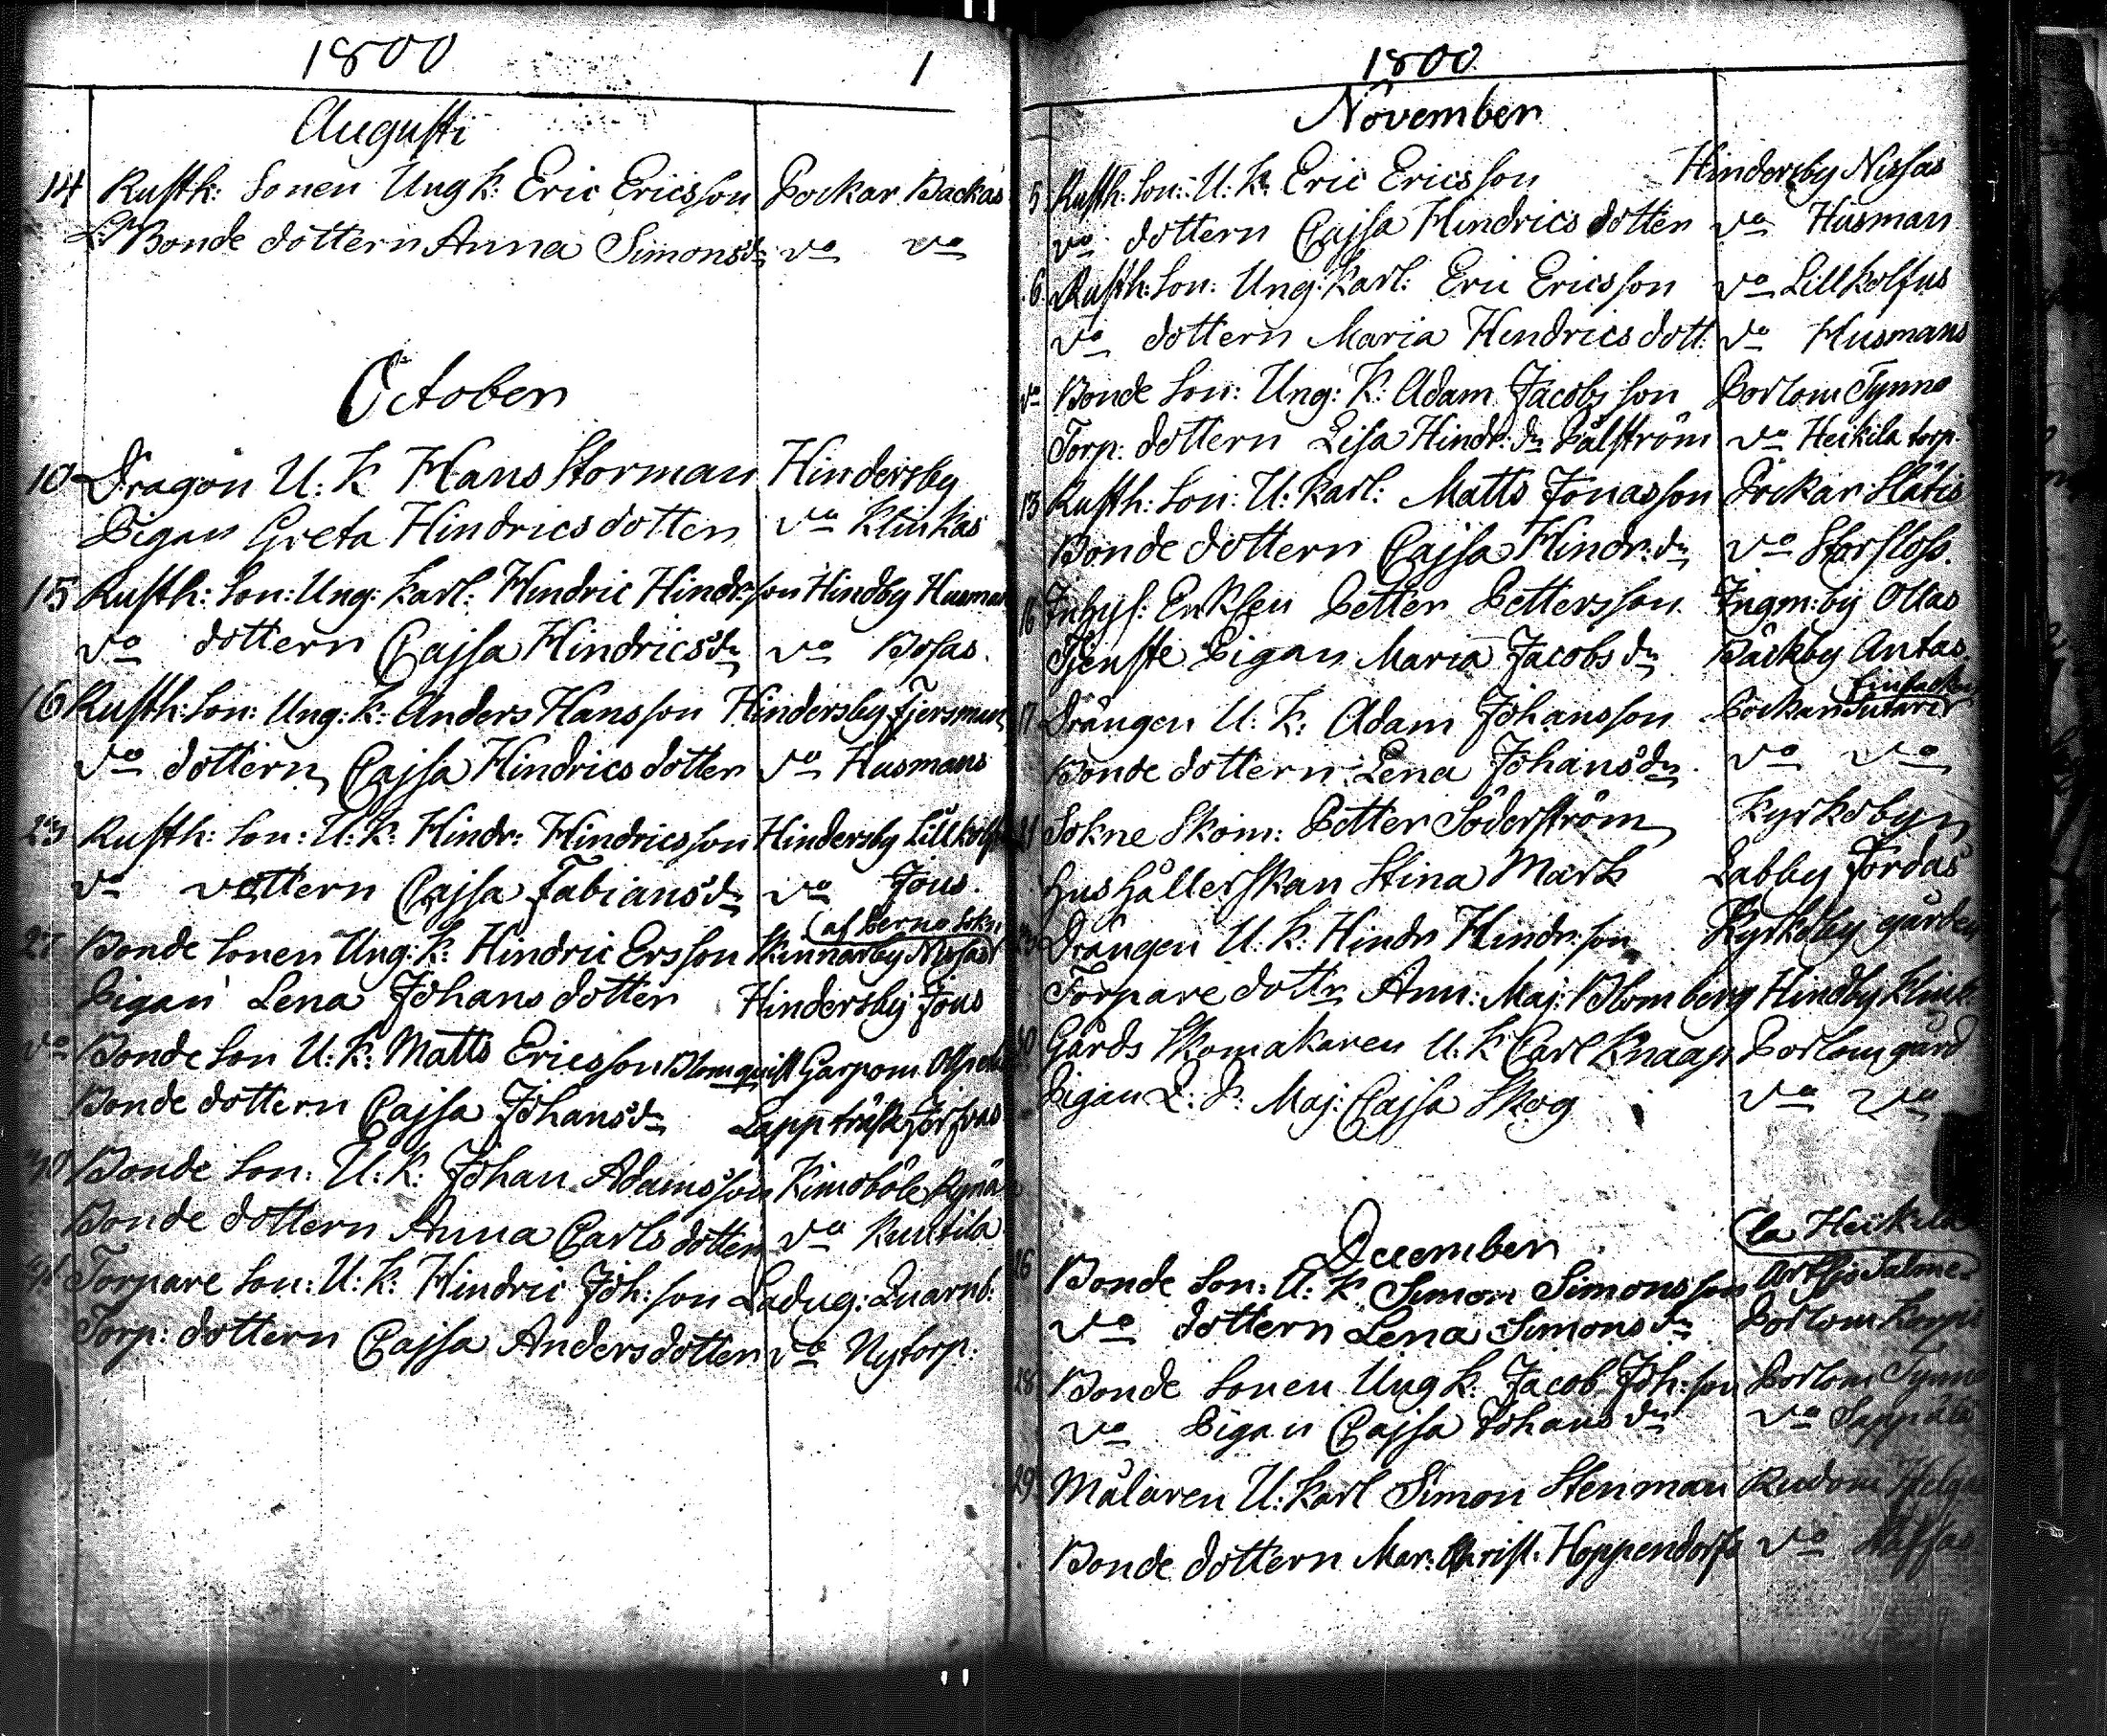 1800
1
Augusti
14 Rusth: Sonen Ung k: Eric Ericsson Pockar Backas
Bonde dottern Anna Simonsdr do do
October
10 Dragon U: K Hans Storman Hindersby
Pigan Greta Hindricsdotter do Klinkas
15 Rusth: Son: Ung: karl: Hindric Hindr:son Hindby Husman
do dottern Cajsa Hindricsdr do Bosas
16 Rusth: Son: Ung: K: Anders Hansson Hindersby
do dottern Cajsa Hindricsdotter do Husmans
23 Rusth: Son: U: K: Hindr: Hindricsson Hindersby
do dottern Cajsa Fabiansdr do Jous
(af Perno Sokn
27 Bonde Sonen Ung: K: Hindric Ersson Skinnarby Nissas
Pigan Lena Johansdotter Hindersby Jous
do Bonde Son U: K: Matts Ericsson Blomquist Garpom
Bonde dottern Cajsa Johansdr Lappträsk
Bonde Son: U: K: Johan Adamsson Kimoböle
Bonde dottern Anna Carlsdotter do Kuutila
Torpare Son: U: K: Hindric Joh:son Ladug: Quarnb:
Torp: dottern Cajsa Andersdotter do Nytorp:
1800
November
5 Rusth: Son: U: K: Eric Ericsson Hindersby Nissas
do dottern Cajsa Hindricsdotter do Husman
6 Rusth: Son: Ung: karl: Eric Ericsson do Lillkolfus
do dottern Maria Hendricsdott: do Husmans
do Bonde Son: Ung: K: Adam Jacobsson Porlom Tynne
Torp: dottern Lisa Hindr: dr Pålström do Heikila torp:
13 Rusth: Son: U: karl: Matts Jonasson Pockar Slätis
Bonde dottern Cajsa Hindr: dr do Storsloss.
16 Inhys: Enklen Petter Pettersson Ingm:by Ollas
Tjenste Pigan Maria Jacobsdr Bäckby Antas
17 Drängen U: K: Adam Johansson Pockar
Bonde dottern Lena Johansdr do do
21 Sokne Skom: Petter Söderström Kyrkobyn
Hushållerskan Stina Mark Labby Jordas
Drängen U: K: Hindr Hindr:son Kyrkoby gården
Torpare dottr Ann: Maj: Blomberg Hindby Klink
30 Gårds Skomakaren U: K Carl Knaap Porlom gård
Pigan Maj: Cajsa Skog do do
December
la Heikila
26 Bonde Son: U: K Simon Simonsson Artsjö
do dottern Lena Simonsdr Porlom
28 Bonde Sonen Ung K: Jacob Joh:son Porlom Tynne
do Pigan Cajsa Johansdr do
29 Målaren U: karl Simon Stenman Rudom
Bonde dottern Mar: Christ: Hoppendorfs do